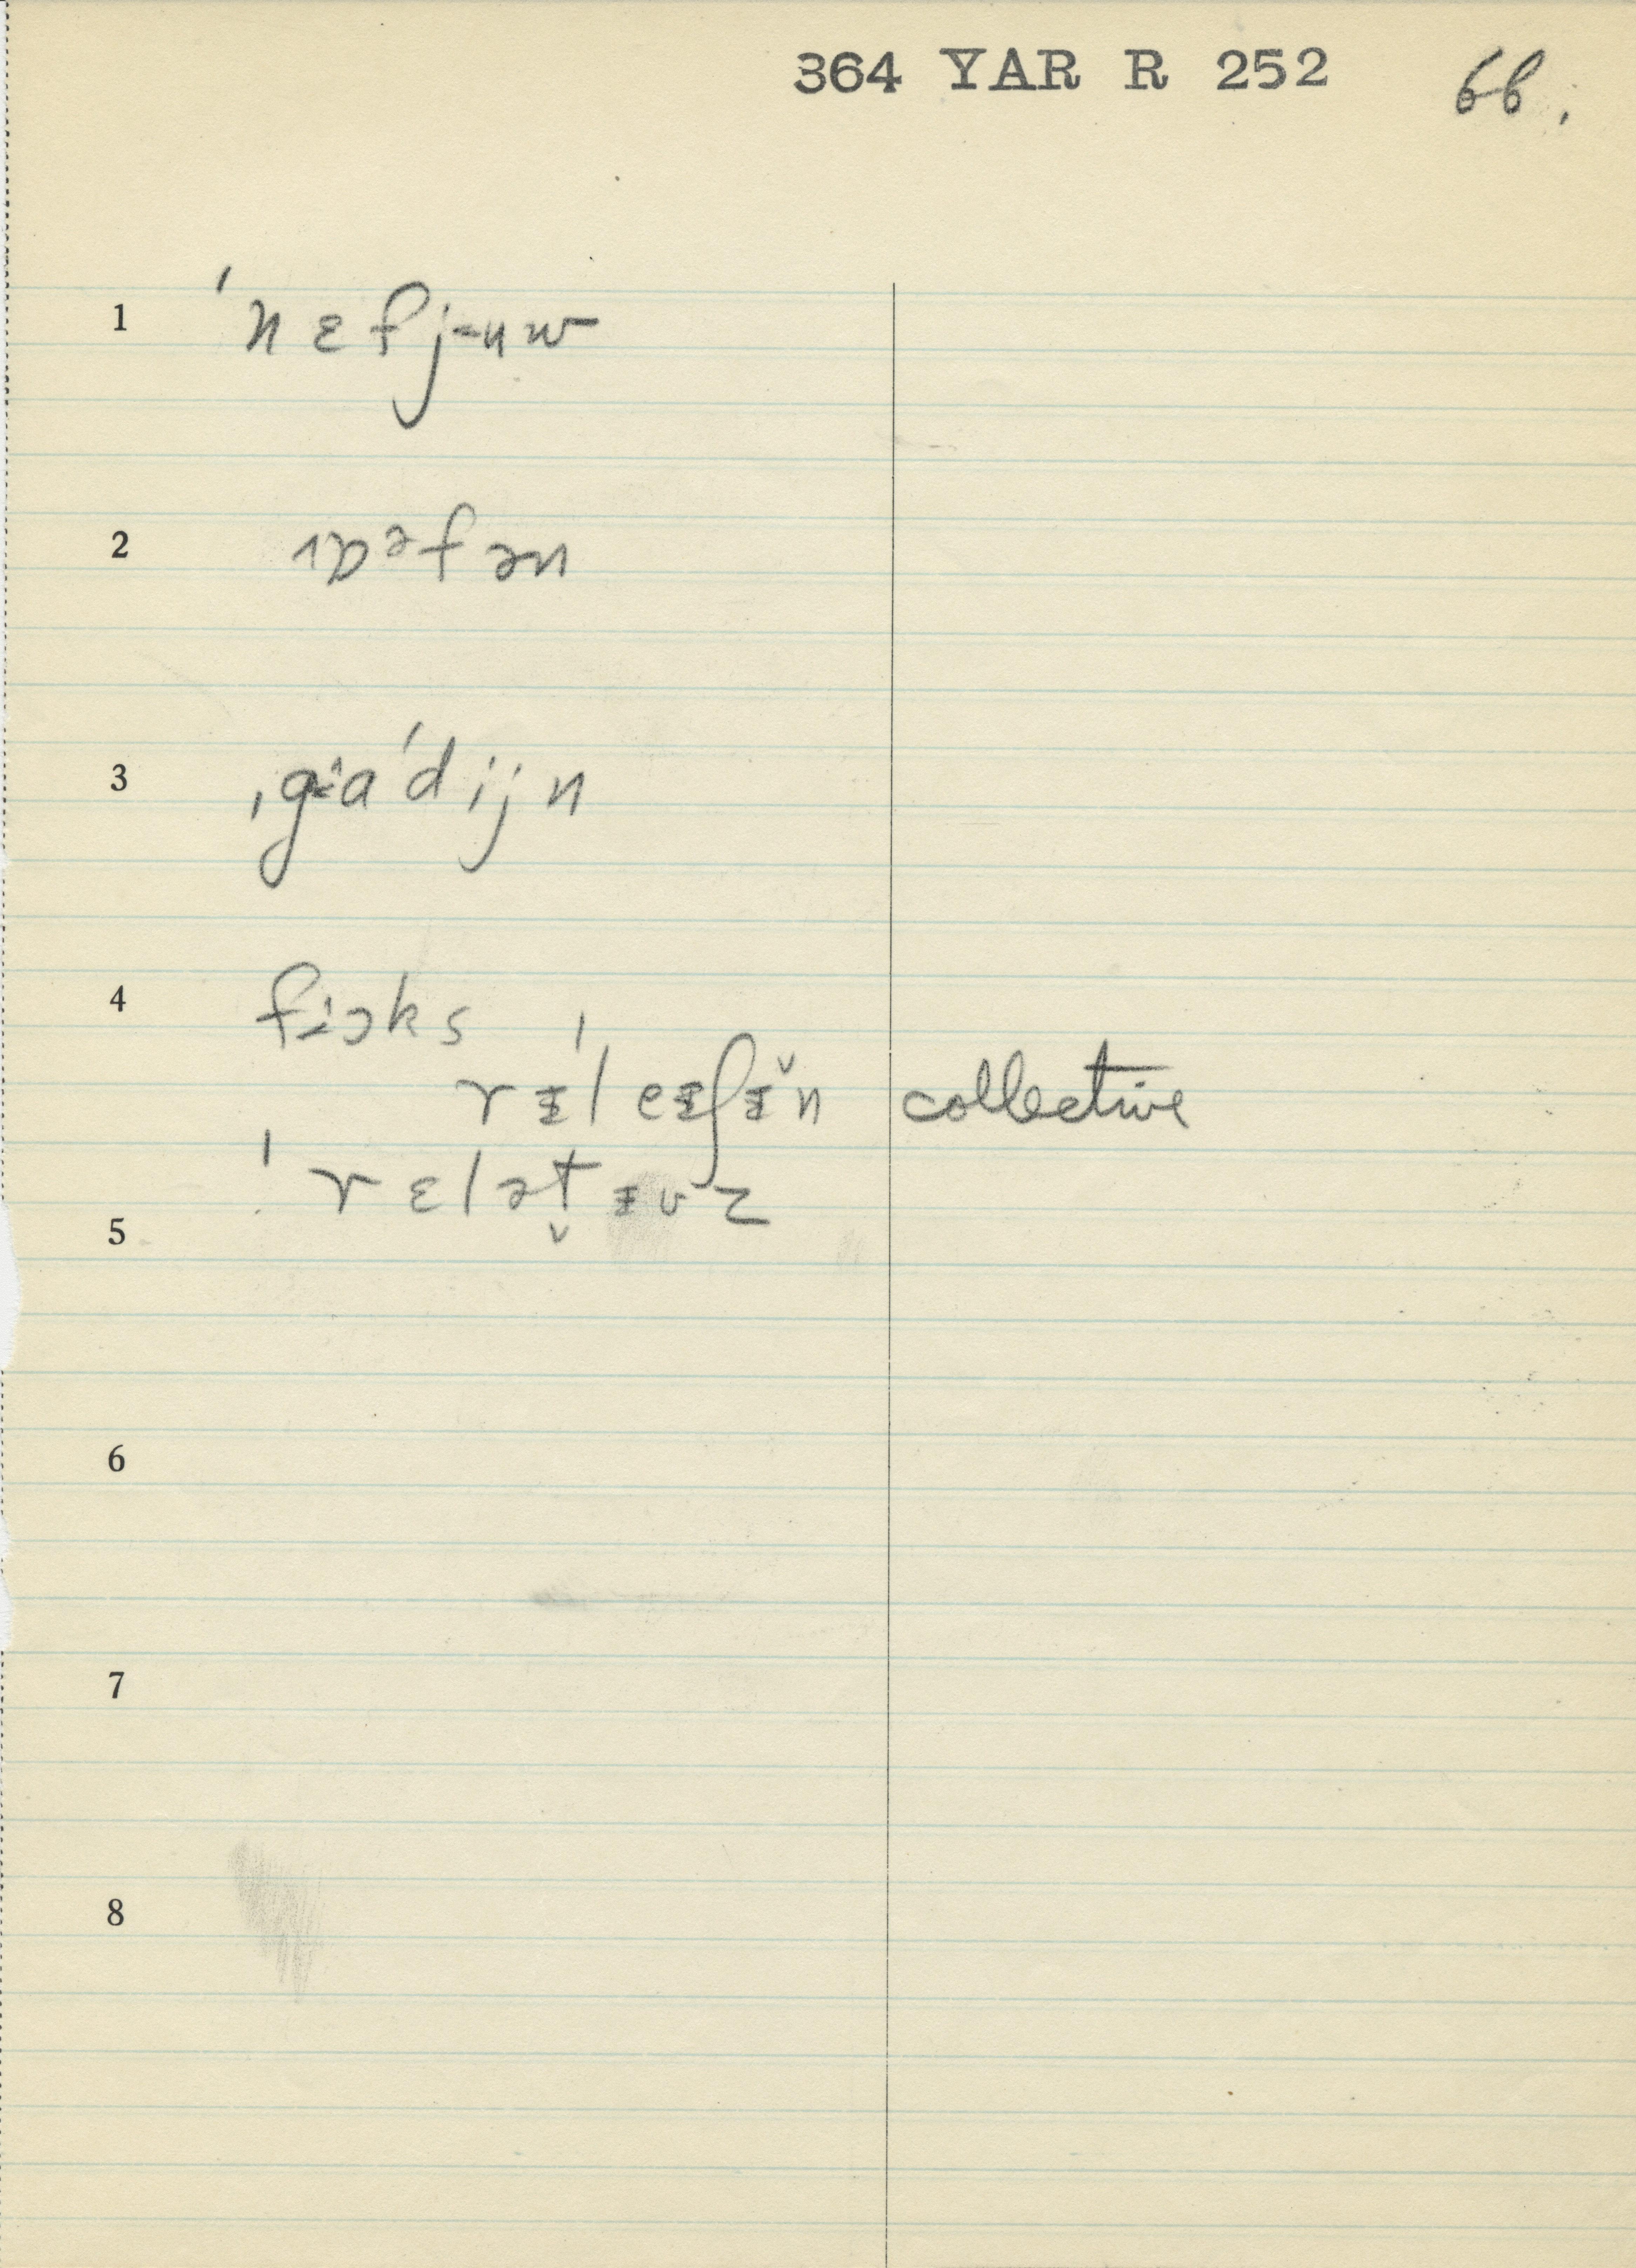 364 YAR R 252 66.
1 ˈnɛfj-uw
2 ɔən
3 ˌgɨaˈdijn
4 fɨɔks
rᵻˈleᵻʃᵻ̌n collective
ˈrɛlət̬ᵻvz
5
6
7
8